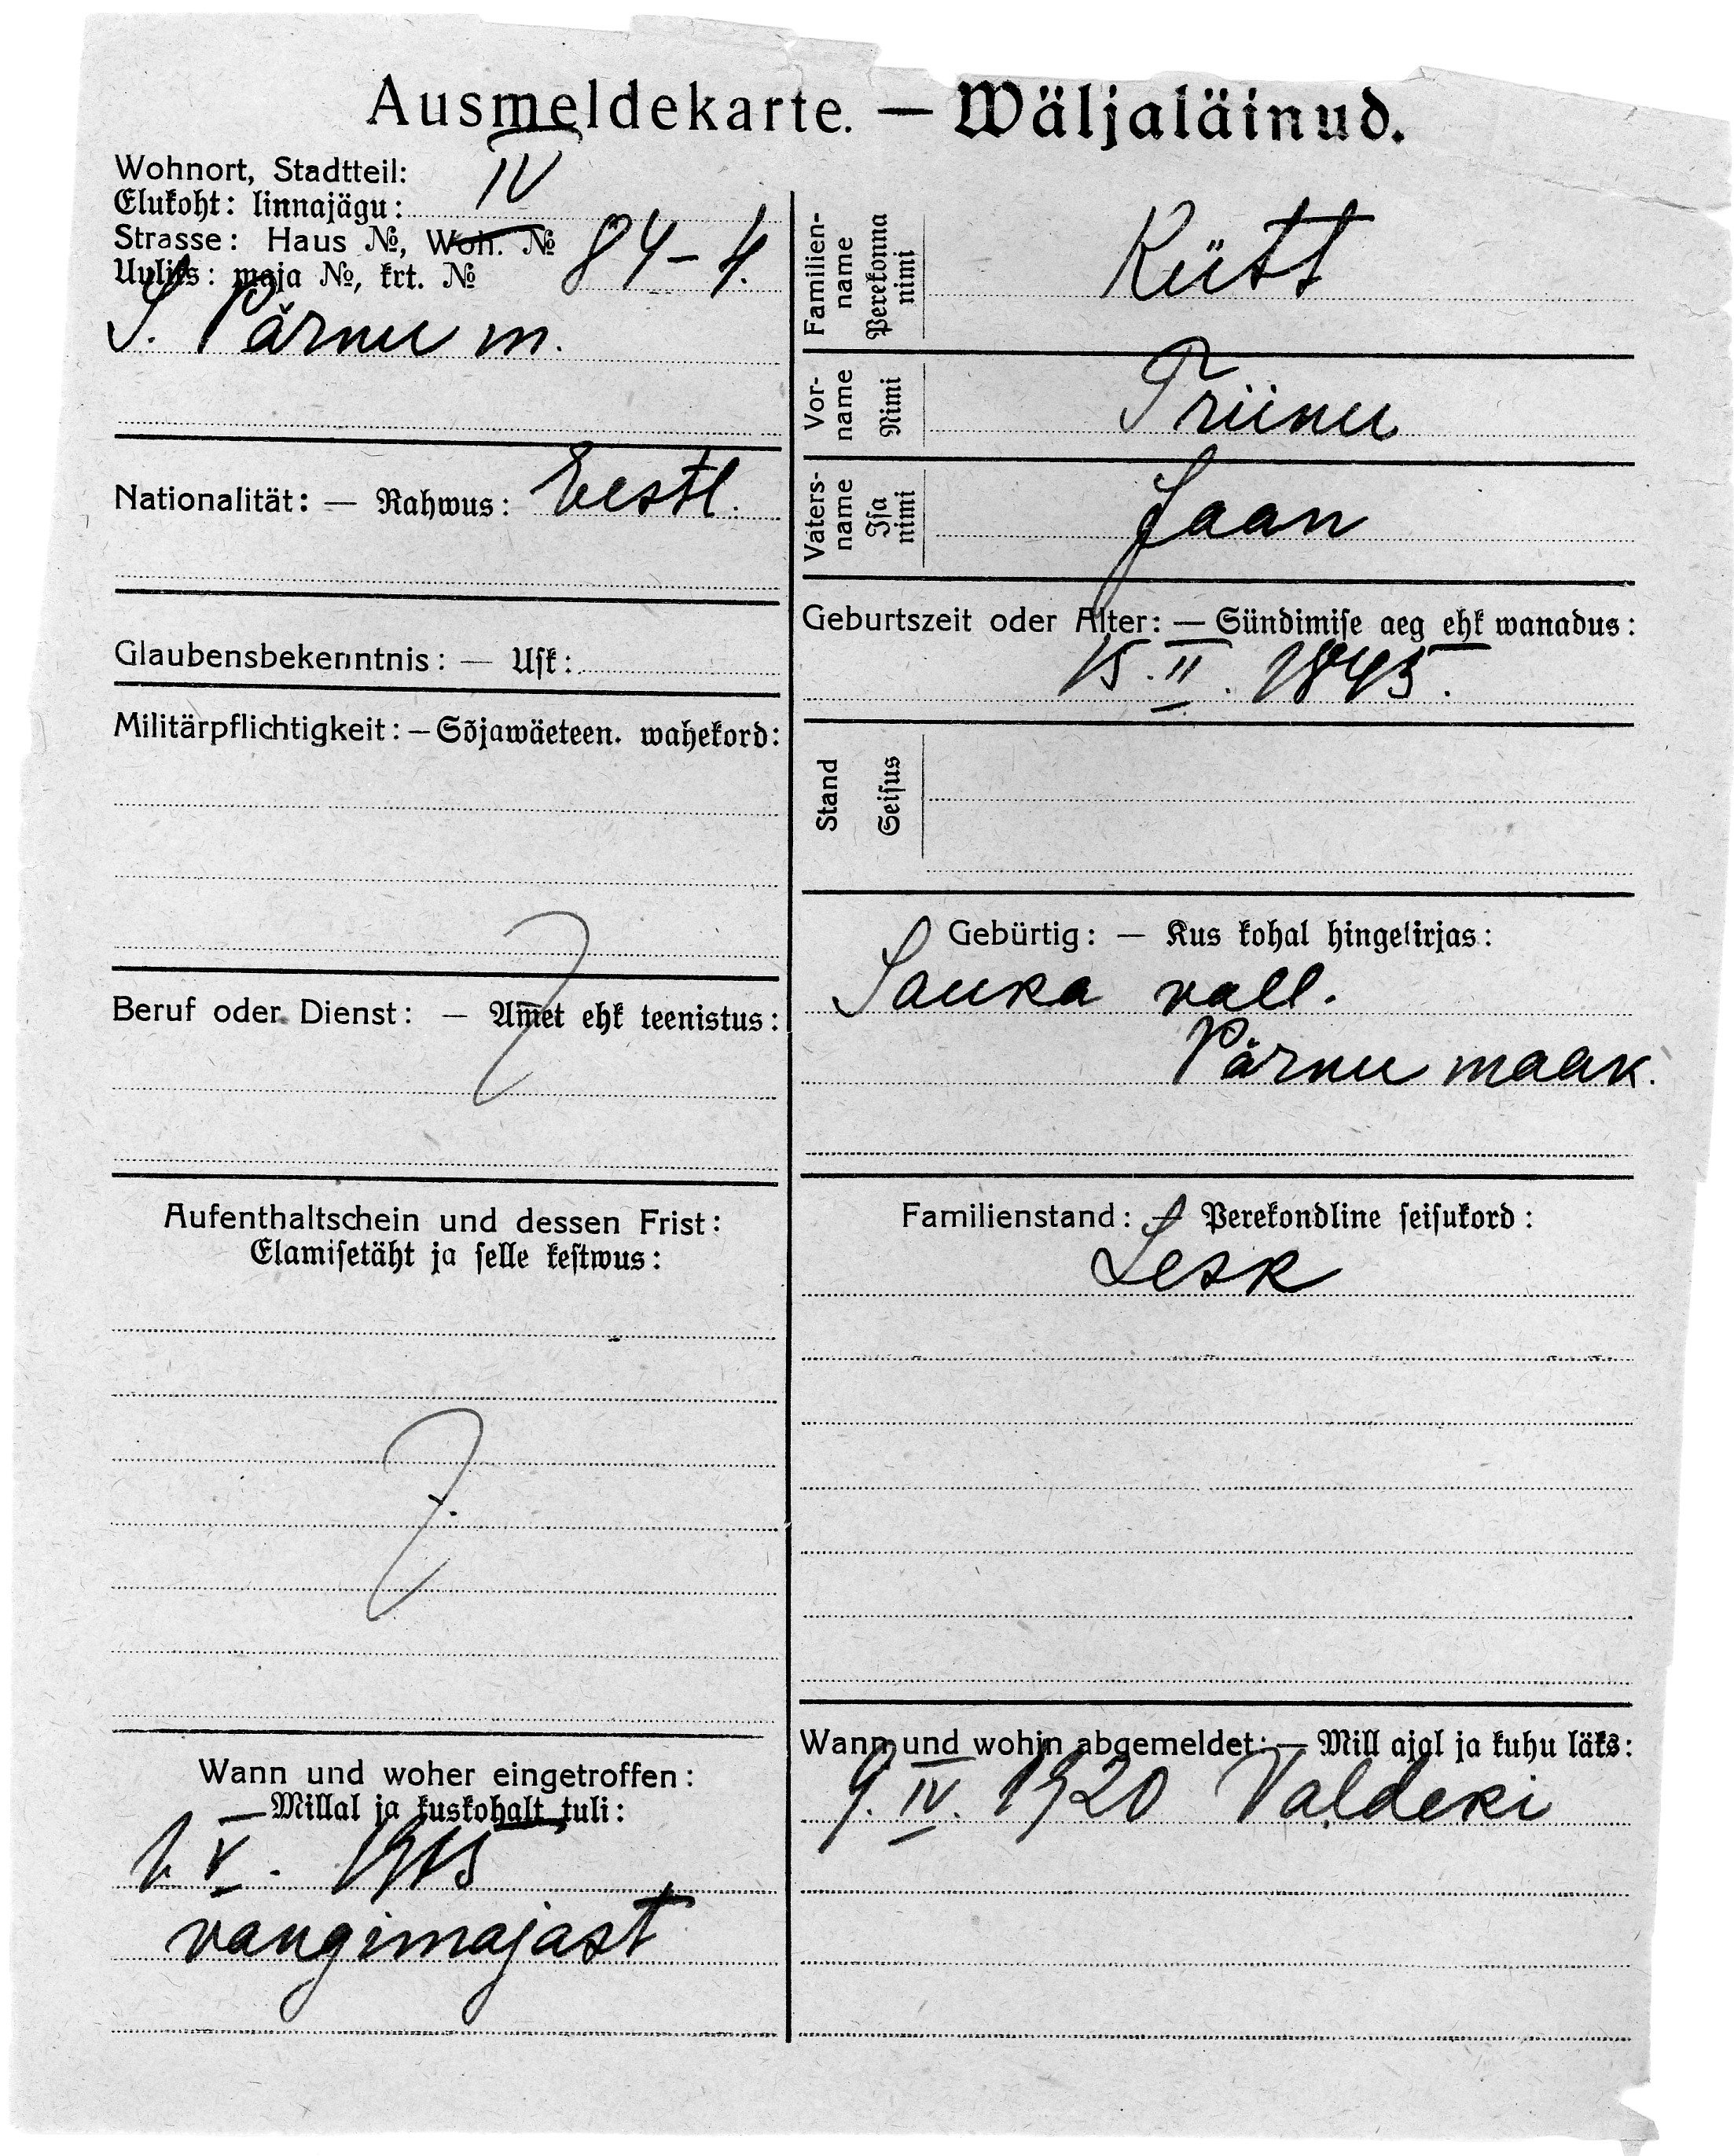 Ausmeldekarte. — Wäljaläinud.
Wohnort, Stadtteil:
Elukoht: linnajägu: IV
Strasse: Haus №, Woh. №
Uulits: maja №, krt. № 84-4.
S. Pärnu m.
Nationalität: — Rahwus: Eestl.
Glaubensbekenntnis: — Usk:
Militärpflichtigkeit: — Sõjawäeteen. wahekord:
Beruf oder Dienst: — Amet ehk teenistus:
Aufenthaltschein und dessen Frist:
Elamisetäht ja selle kestwus:
Wann und woher eingetroffen:
— Millal ja kuskohalt tuli:
1. V. 1915
vangimajast
Familien-
name
Perekonna
nimi
Kütt
Vor-
name
Nimi
Triinu
Vaters-
name
Isa
nimi
Jaan
Geburtszeit oder Alter: — Sündimise aeg ehk wanadus:
15. II. 1845.
Stand
Seisus
Gebürtig: — Kus kohal hingekirjas:
Sauka vall.
Pärnu maak.
Familienstand: — Perekondline seisukord:
Lesk
Wann und wohin abgemeldet: — Mill ajal ja kuhu läks:
9. IV. 1920 Valdeki